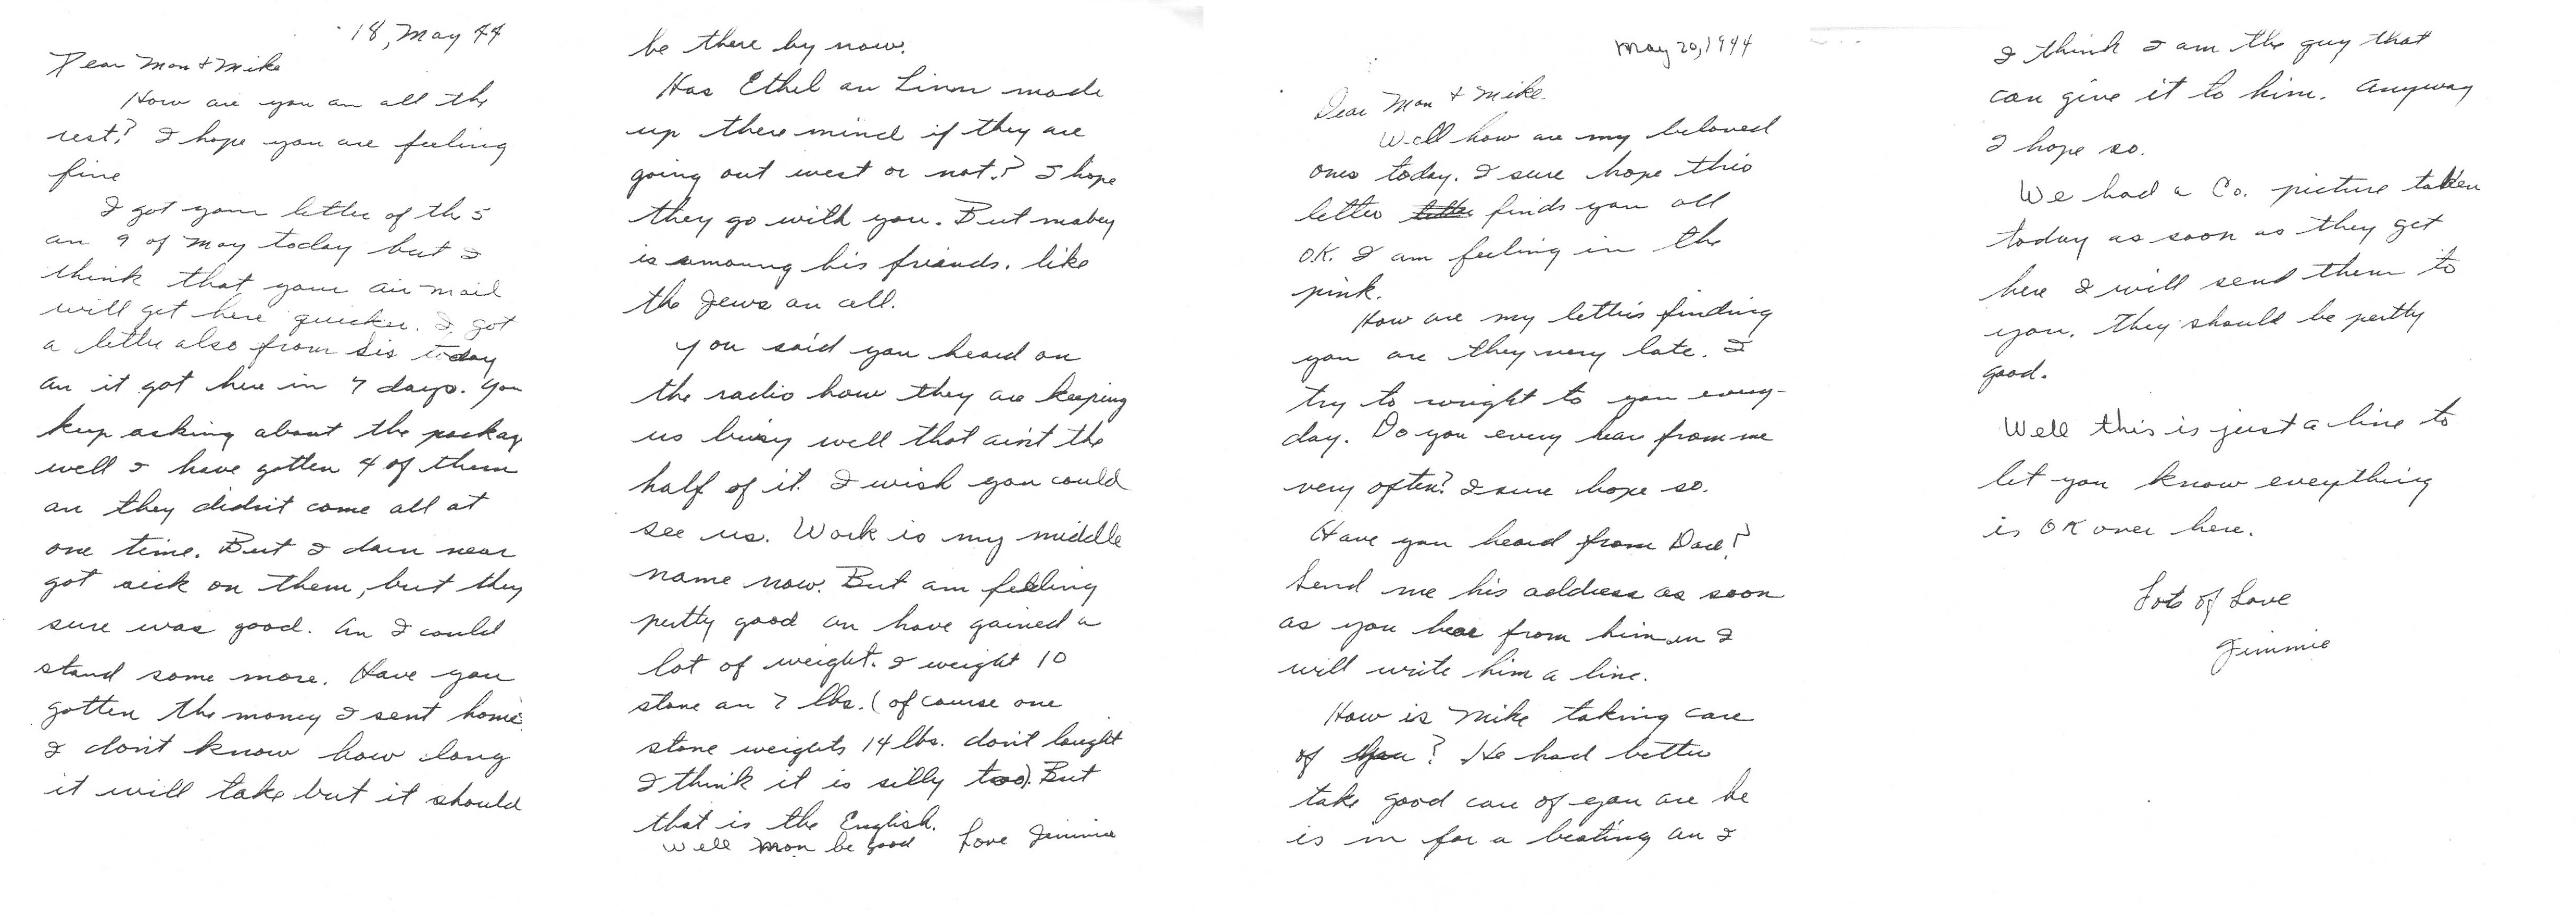 18, May 44
Dear Mom & Mike
How are you an all the
rest? I hope you are feeling
fine
I got your letter of th 5
an 9 of May today but I
think that your air mail
will get here quicker. I got
a letter also from Sis today
an it got here in 7 days. You
keep asking about the packag
well I have gotten 4 of them
an they didn't come all at
one time. But I darn near
got sick on them, but they
sure was good. An I could
stand some more. Have you
gotten the money I sent home
I don't know how long
it will take but it should
be there by now.
Has Ethel an Linn made
up there mind if they are
going out west or not? I hope
they go with you. But mabey
is amoung his friends. like
the Jews an all.
You said you heard on
the radio how they are keeping
us busy well that ain't the
half of it. I wish you could
see us. Work is my middle
name now. But am feeling
pertty good an have gained a
lot of weight. I weight 10
stone an 7 lbs. (of course one
stone weights 14 lbs. don't laught
I think it is silly too). But
that is the English.
Well Mom be good Love Jimmie
May 20, 1944
Dear Mom & Mike.
Well how are my beloved
ones today. I sure hope this
letter finds you all
O.K. I am feeling in the
pink.
How are my letters finding
you are they very late. I
try to wright to you every-
day. Do you every hear from me
very often? I sure hope so.
Have you heard from Dad?
Send me his address as soon
as you hear from him an I
will write him a line.
How is Mike taking care
of you? He had better
take good care of you are he
is in for a beating an I
I think I am the guy that
can give it to him. Anyway
I hope so.
We had a Co. picture taken
today as soon as they get
here I will send them to
you. They should be pertty
good.
Well this is just a line to
let you know eveything
is OK over here.
Lots of Love
Jimmie